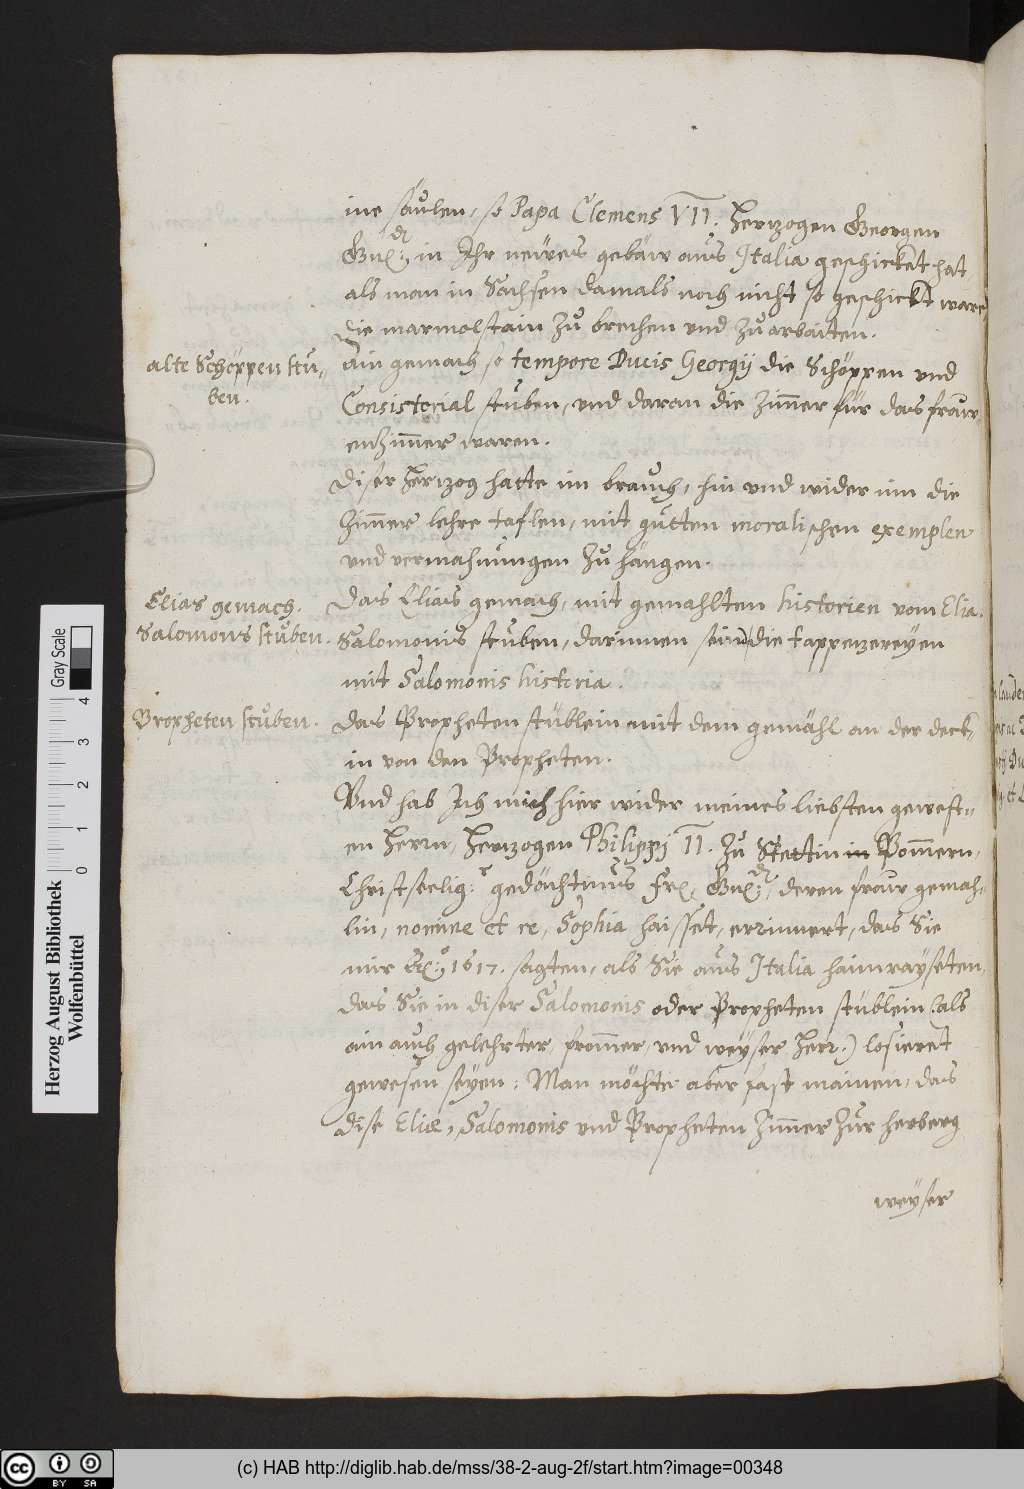 ine säulen, so Papa Clemens VII. Hertzogen Georgen
Gn: in Ihr neües gebäw aus Italia geschickt hat
als man in Sachsen damals noch nicht so geschickt ware,
die marmolstain zu brechen und zu arbaiten.
alte Schöppen stu-
ben.
Ain gemach so tempore Ducis Georgij die Schöppen und
Consistorial stuben, und daran die zimer für das fraw-
enzimer waren.
Diser Hertzog hatte im brauch, hin und wider inn die
zimer lehre taflen, mit gutten moralischen exemplen
und vermahnungen zu hängen.
Elias gemach.
Das Elias gemach, mit gemahlten historien vom Elia.
Salomons stuben.
Salomonis stuben, darinnen seind die tappezereyen
mit Salomonis historia.
Propheten stuben.
Das Propheten stüblein mit dem gemähl an der deck-
in von den Propheten.
Und hab Ich mich hier wider meines liebsten gewest-
en Herrn, Hertzogen Philippj II. zu Stettin in Pomern,
Christseelig: gedächtnus Fr. Gn:, deren fraw gemah-
lin, nomine et re, Sophia haisset, erinnert, das Sie
mir Ao: 1617. sagten, als Sie aus Italia haimrayseten,
das Sie in diser Salomonis oder Propheten stüblein (als
ain auch gelehrter, fromer, und weyser Herr.) losieret
gewesen seyen: Man möchte aber fast mainen, das
dise Eliæ, Salomonis und Propheten zimer zur herberg
weyser
Herzog August Bibliothek
Wolfenbüttel
Gray Scale
0 1 2 3 4
(c) HAB http://diglib.hab.de/mss/38-2-aug-2f/start.htm?image=00348
CC BY SA